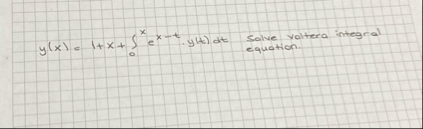 y(x) = 1+x+∫₀ˣ e^(x-t) . y(t) dt Solve voltera integral
equation.